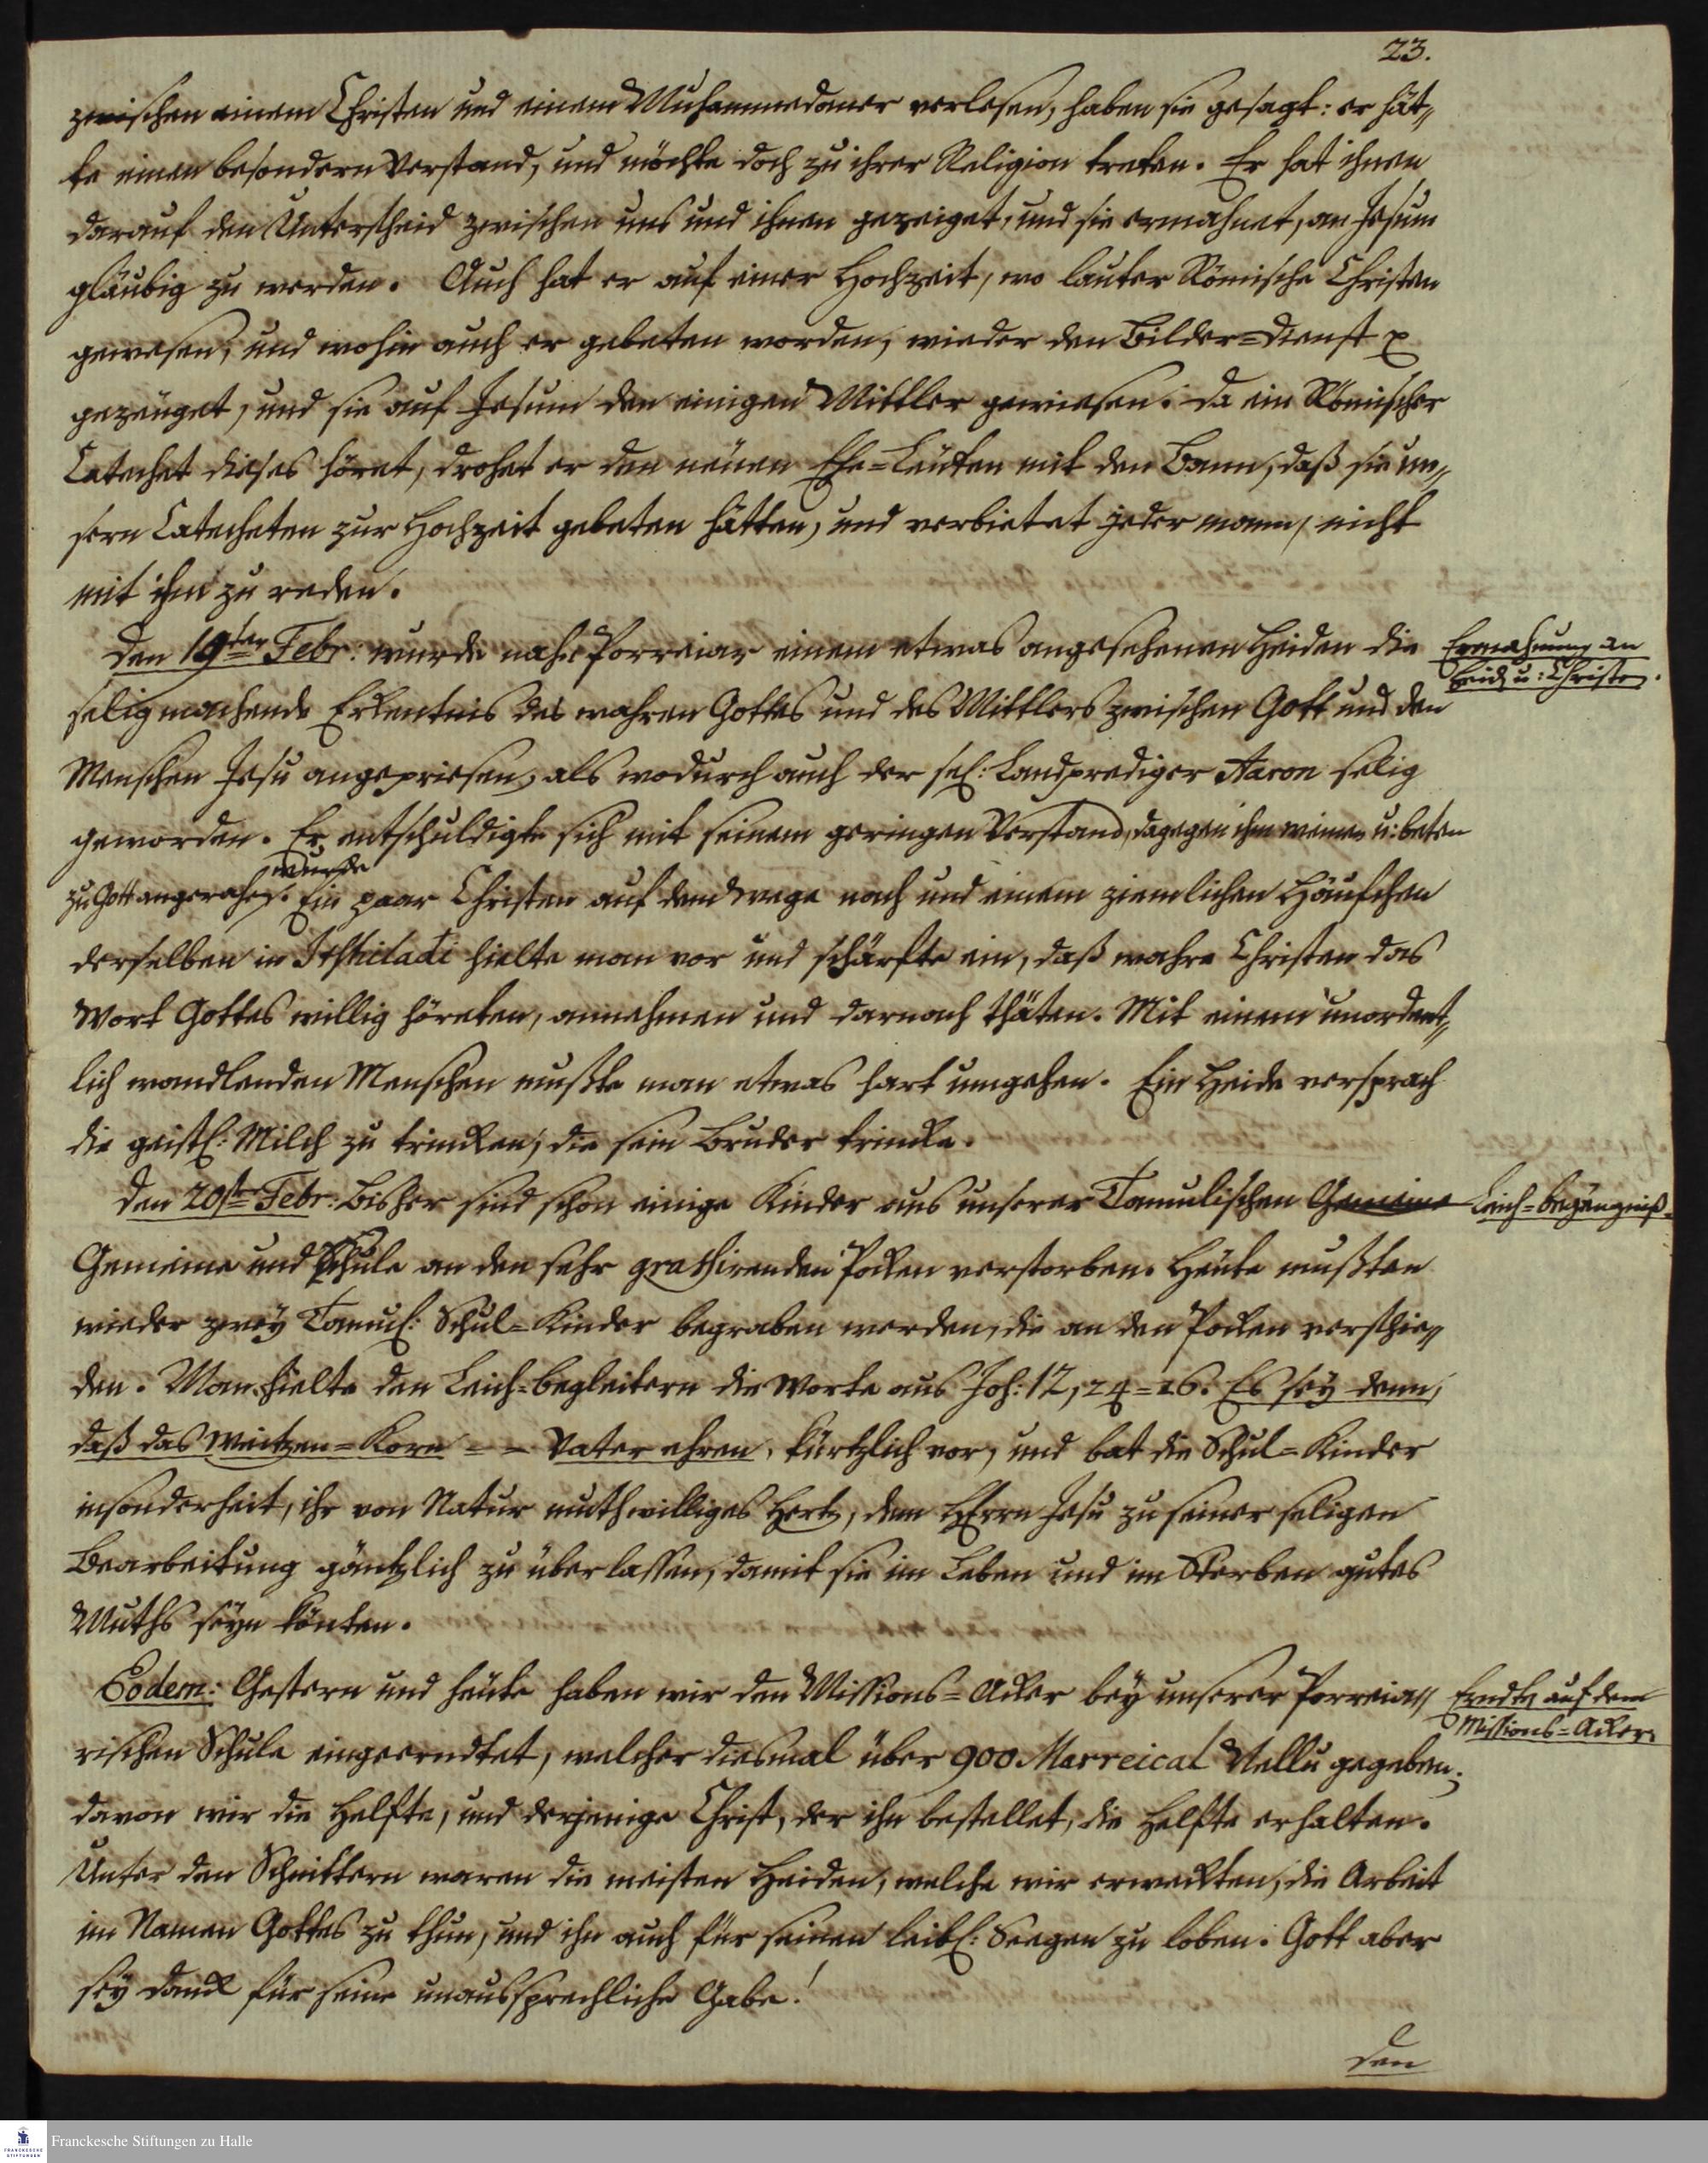 23.
zwischen einem Christen und einem Muhammedaner verlesen, haben sie gesagt: er hät„
te einen besondern Verstand, und möchte doch zu ihrer Religion treten. Er hat ihnen
darauf den Unterscheid zwischen uns und ihnen gezeiget, und sie ermahnet, an Jesum
gläubig zu werden. Auch hat er auf einer Hochzeit, wo lauter Römische Christen
gewesen, und wohin auch er gebeten worden, wieder den Bilder=Dienst
gezeuget, und sie auf Jesum den einigen Mittler gewiesen. Da ein Römischer
Catechet dieses höret, drohet er den neuen Ehe=Leuten mit den Bann, daß sie un„
sern Catecheten zur Hochzeit gebeten hätten, und verbietet jederman, nicht
mit ihm zu reden.
Den 19ten Febr: wurde nahe Porreiar einem etwas angesehenen Heiden die
Ermahnung an
Heid. u: Christen.
seligmachende Erkentnis des wahren Gottes und des Mittlers zwischen Gott und den
Menschen Jesu angepriesen, als wodurch auch der sel: Landprediger Aaron selig
geworden. Er entschuldigte sich mit seinem geringen Verstand, dagegen ihm weinen u: beten
wurde
zu Gott angerathen. Ein paar Christen auf dem Wege nach und einem ziemlichen Häufchen
derselben in Itshiladi hielte man vor und schärfte ein, daß wahre Christen das
Wort Gottes willig höreten, annehmen und darnach thäten. Mit einem unordent„
lich wandlenden Menschen mußte man etwas hart umgehen. Ein Heide versprach
die geistl: Milch zu trincken, die sein Bruder trincke.
Den 20ste Febr: Bisher sind schon einige Kinder aus unserer Tamulischen Gemeine
Leich=Begängniß.
Gemeine und Schule an den sehr grassirenden Pocken verstorben. Heute mußten
wieder zwey Tamul: Schul=Kinder begraben werden, die an den Pocken verschie„
den. Man hielte den Leich=begleitern die Worte aus Joh: 12, 24=26. Es sey denn,
daß das Weitzen=Korn = = Vater ehren, kürtzlich vor, und bat die Schul=Kinder
insonderheit, ihr von Natur muthwilliges Hertz, dem HErrn Jesu zu seiner seligen
Bearbeitung gäntzlich zu überlassen, damit sie im Leben und im Sterben gutes
Muths seyn könten.
Eodem: Gestern und heute haben wir den Missions=Acker bey unserer Porreia„
Erndte auf dem
Missions=Acker.
rischen Schule eingeerndtet, welcher diesmal über 900 Marreical Nellu gegeben;
davon wir die Helfte, und derjenige Christ, der ihn bestellet, die Helfte erhalten.
Unter den Schnittern waren die meisten Heiden, welche wir erweckten, die Arbeit
im Namen Gottes zu thun, und ihn auch für seinen leibl: Seegen zu loben. Gott aber
sey Danck für seine unaussprechliche Gabe!
Den
Franckesche Stiftungen zu Halle